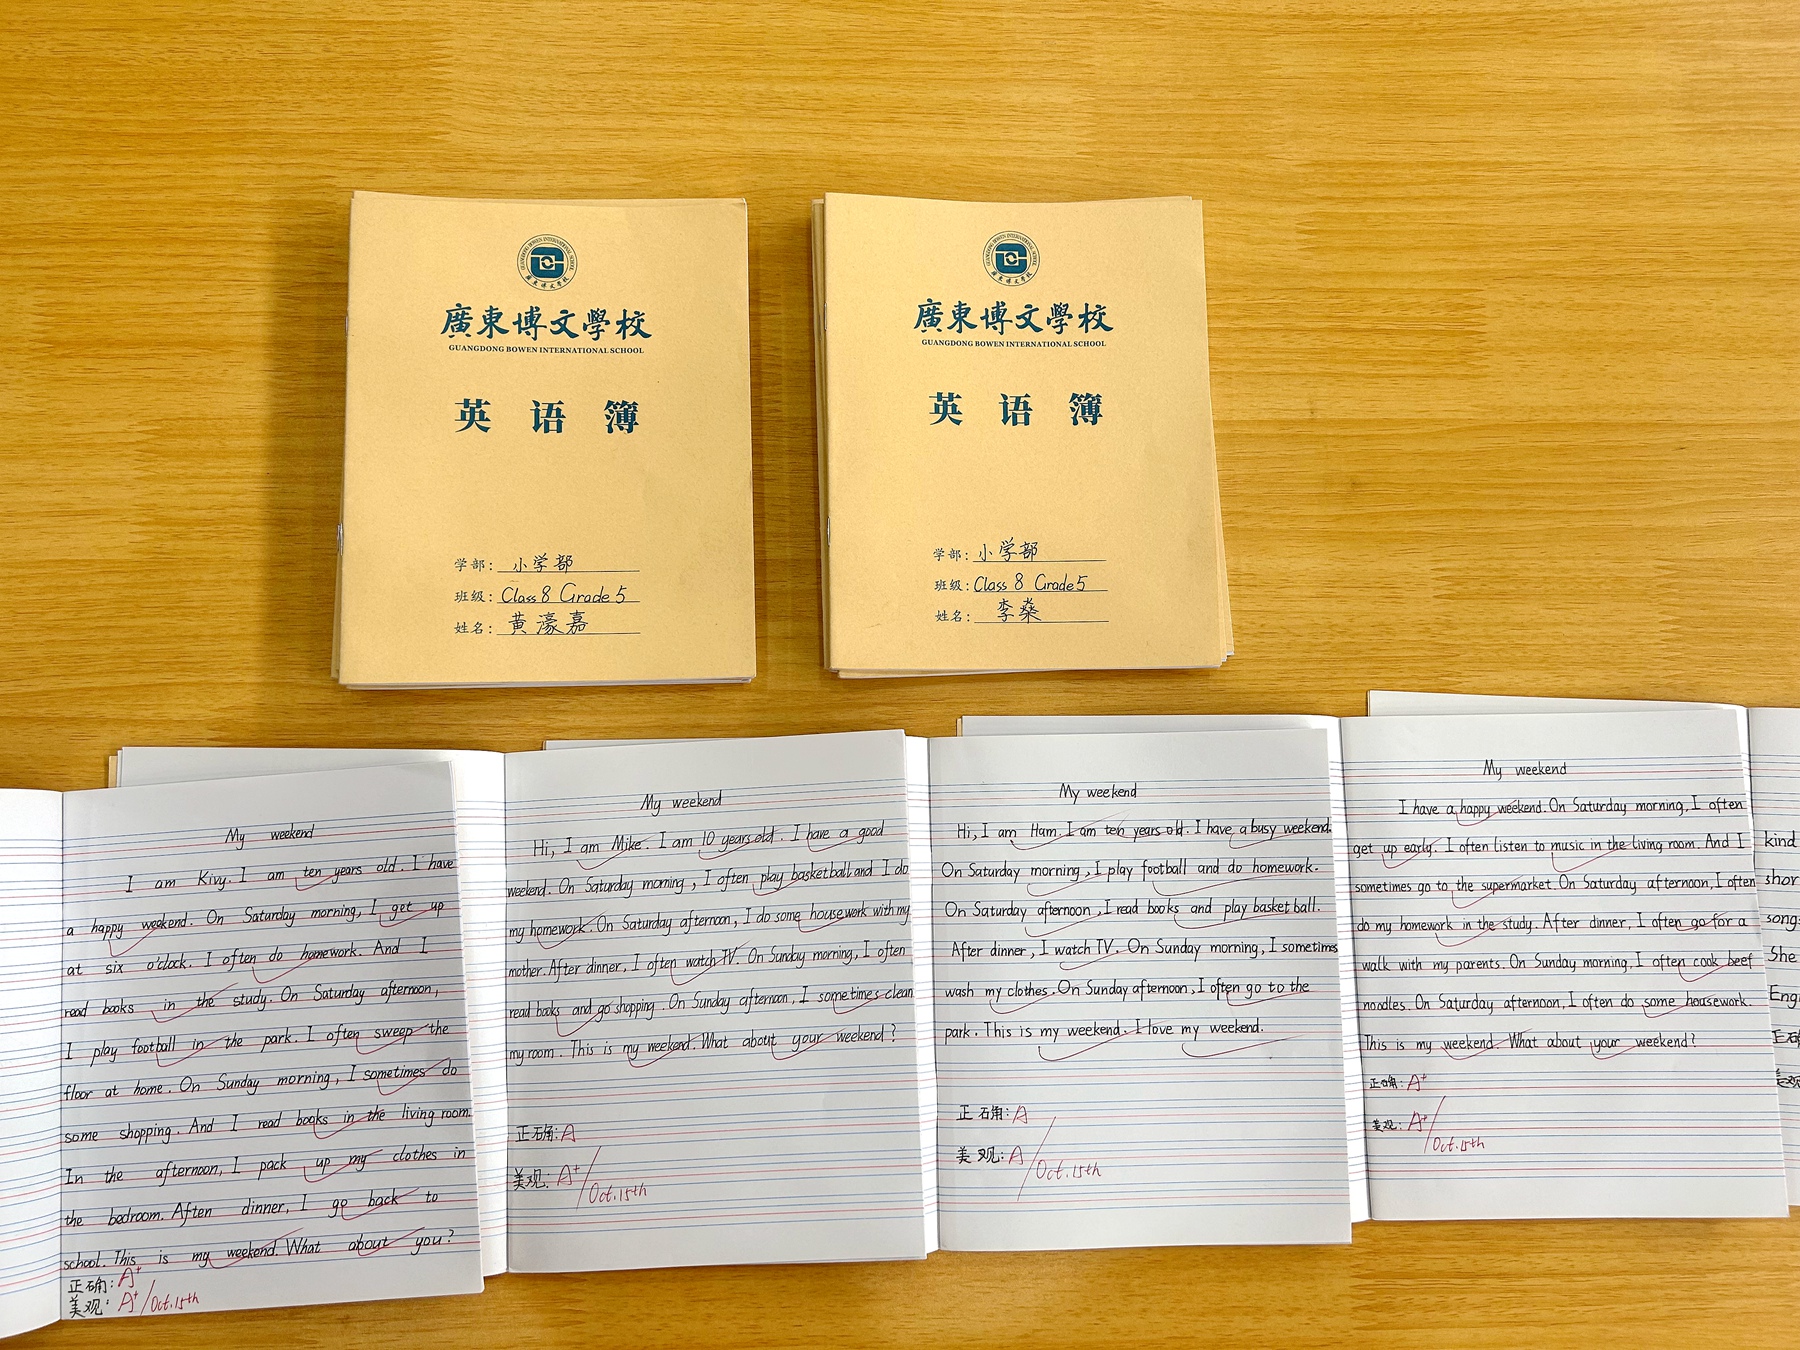 GUANGDONG BOWEN INTERNATIONAL SCHOOL
廣東博文學校
廣東博文學校
GUANGDONG BOWEN INTERNATIONAL SCHOOL
英语簿
学部: 小学部
班级: Class 8 Grade 5
姓名: 黄濠嘉
GUANGDONG BOWEN INTERNATIONAL SCHOOL
廣東博文學校
廣東博文學校
GUANGDONG BOWEN INTERNATIONAL SCHOOL
英语簿
学部: 小学部
班级: Class 8 Grade 5
姓名: 李燊
My weekend
I am Kivy. I am ten years old. I have
a happy weekend. On Saturday morning, I get up
at six o'clock. I often do homework. And I
read books in the study. On Saturday afternoon,
I play football in the park. I often sweep the
floor at home. On Sunday morning, I sometimes do
some shopping. And I read books in the living room.
In the afternoon, I pack up my clothes in
the bedroom. Aften dinner, I go back to
school. This is my weekend. What about you?
正确: A+
美观: A+ / Oct. 15th
My weekend
Hi, I am Mike. I am 10 years old. I have a good
weekend. On Saturday morning, I often play basketball and I do
my homework. On Saturday afternoon, I do some housework with my
mother. After dinner, I often watch TV. On Sunday morning, I often
read books and go shopping. On Sunday afternoon, I sometimes clean
my room. This is my weekend. What about your weekend?
正确: A
美观: A+ / Oct. 15th
My weekend
Hi, I am Ham. I am ten years old. I have a busy weekend.
On Saturday morning, I play football and do homework.
On Saturday afternoon, I read books and play basketball.
After dinner, I watch TV. On Sunday morning, I sometimes
wash my clothes. On Sunday afternoon, I often go to the
park. This is my weekend. I love my weekend.
正确: A
美观: A / Oct. 15th
My weekend
I have a happy weekend. On Saturday morning, I often
get up early. I often listen to music in the living room. And I
sometimes go to the supermarket. On Saturday afternoon, I often
do my homework in the study. After dinner, I often go for a
walk with my parents. On Sunday morning, I often cook beef
noodles. On Saturday afternoon, I often do some housework.
This is my weekend. What about your weekend?
正确: A+
美观: A+ / Oct. 15th
kind
shor
song
She
Eng
正确
美观